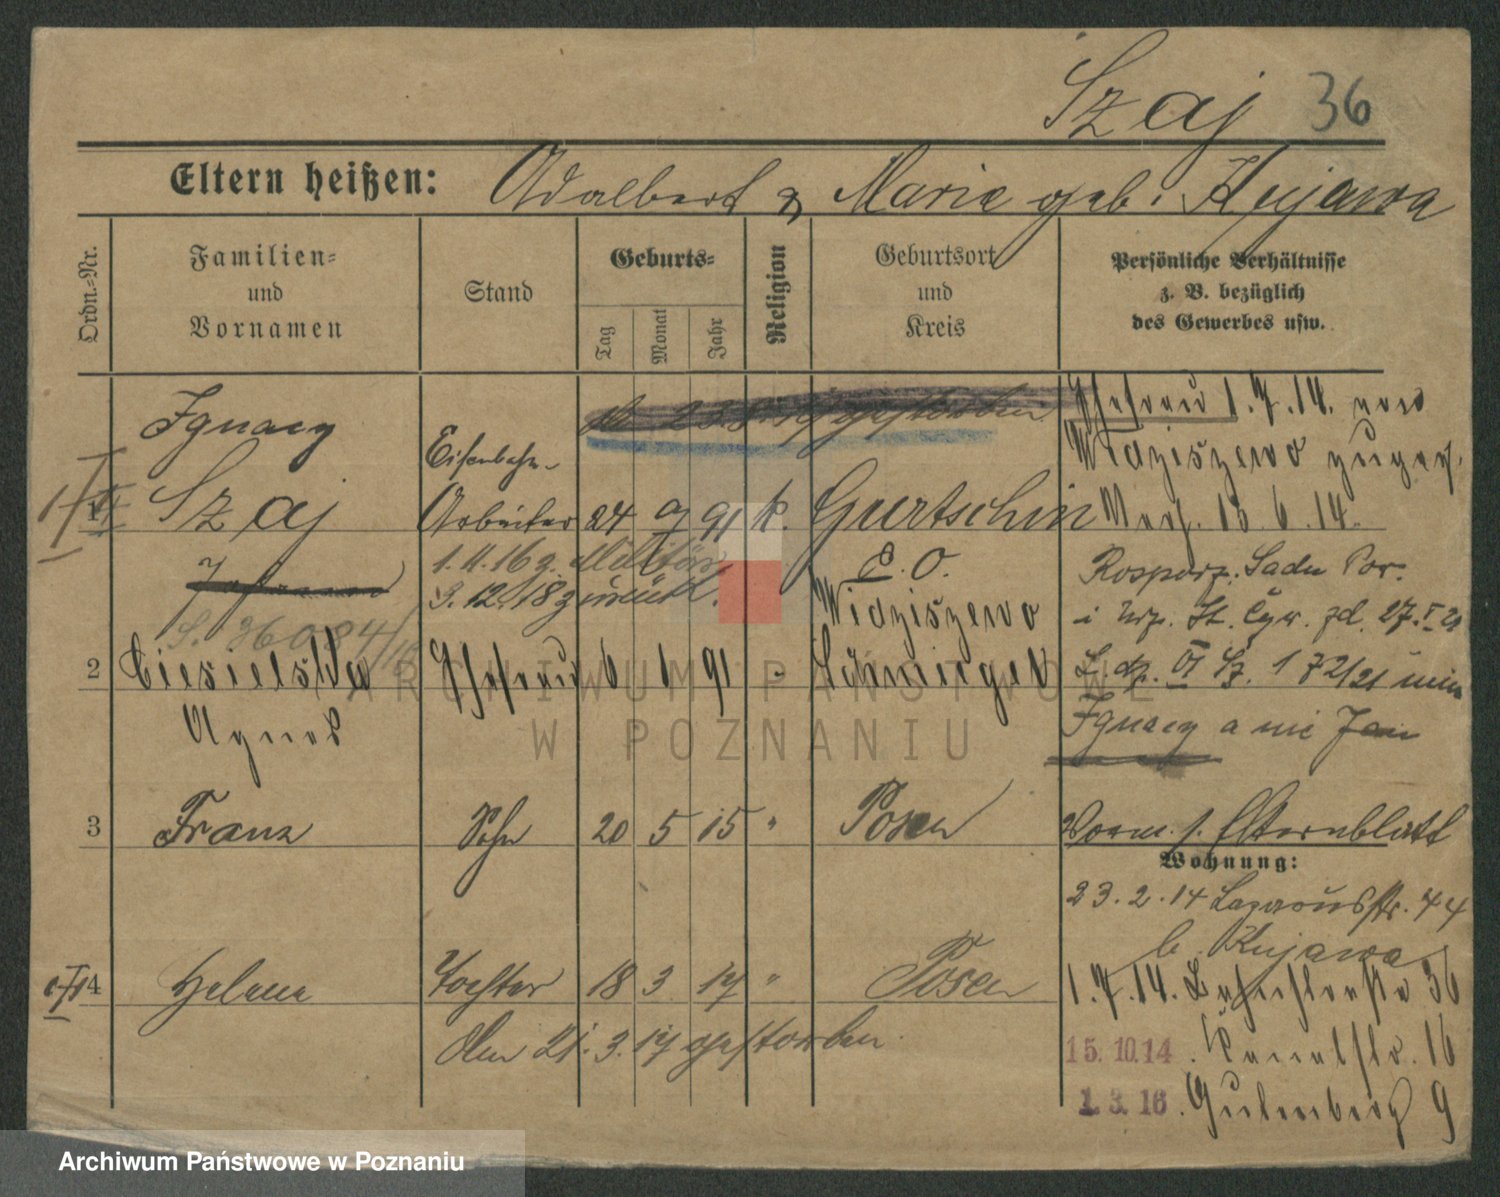 Szaj 36
Eltern heißen: Adalbert & Marie geb. Kujawa
Ordn.-Nr.
Familien-
und
Vornamen
Stand
Geburts-
Tag
Monat
Jahr
Religion
Geburtsort
und
Kreis
Persönliche Verhältnisse
z. B. bezüglich
des Gewerbes usw.
Ignacy
gestorben
Ehefrau 1.7.14. von
Widziszewo zugez.
Eisenbahn-
1 Szaj Arbeiter 24 9 91 k. Gurtschin 13.6.14.
1.11.16 z. Militär
9.12.18 zurück.
P. O.
Widziszewo
Rosporz. Sadu Pow.
i Urz. St. Cyw. zd. 27.I 21
S. 36084/
2 Cieselska Ehefrau 6 1 91 " Schmiegel
L. dz. VI Sz. 172/21 imię
Agnes
Ignacy a nie Jan
3 Franz Sohn 20 5 15 " Posen
Vorm. s. Elternblatt
Wohnung:
23.2.14 Lazarusstr. 44
b. Kujawa
4 Helene Tochter 18 3 17 " Posen
1.7.14. 36
den 21.3.17 gestorben.
15.10.14. Kanalstr. 16
1.3.16. Gutenberg 9
ARCHIWUM PAŃSTWOWE
W POZNANIU
Archiwum Państwowe w Poznaniu